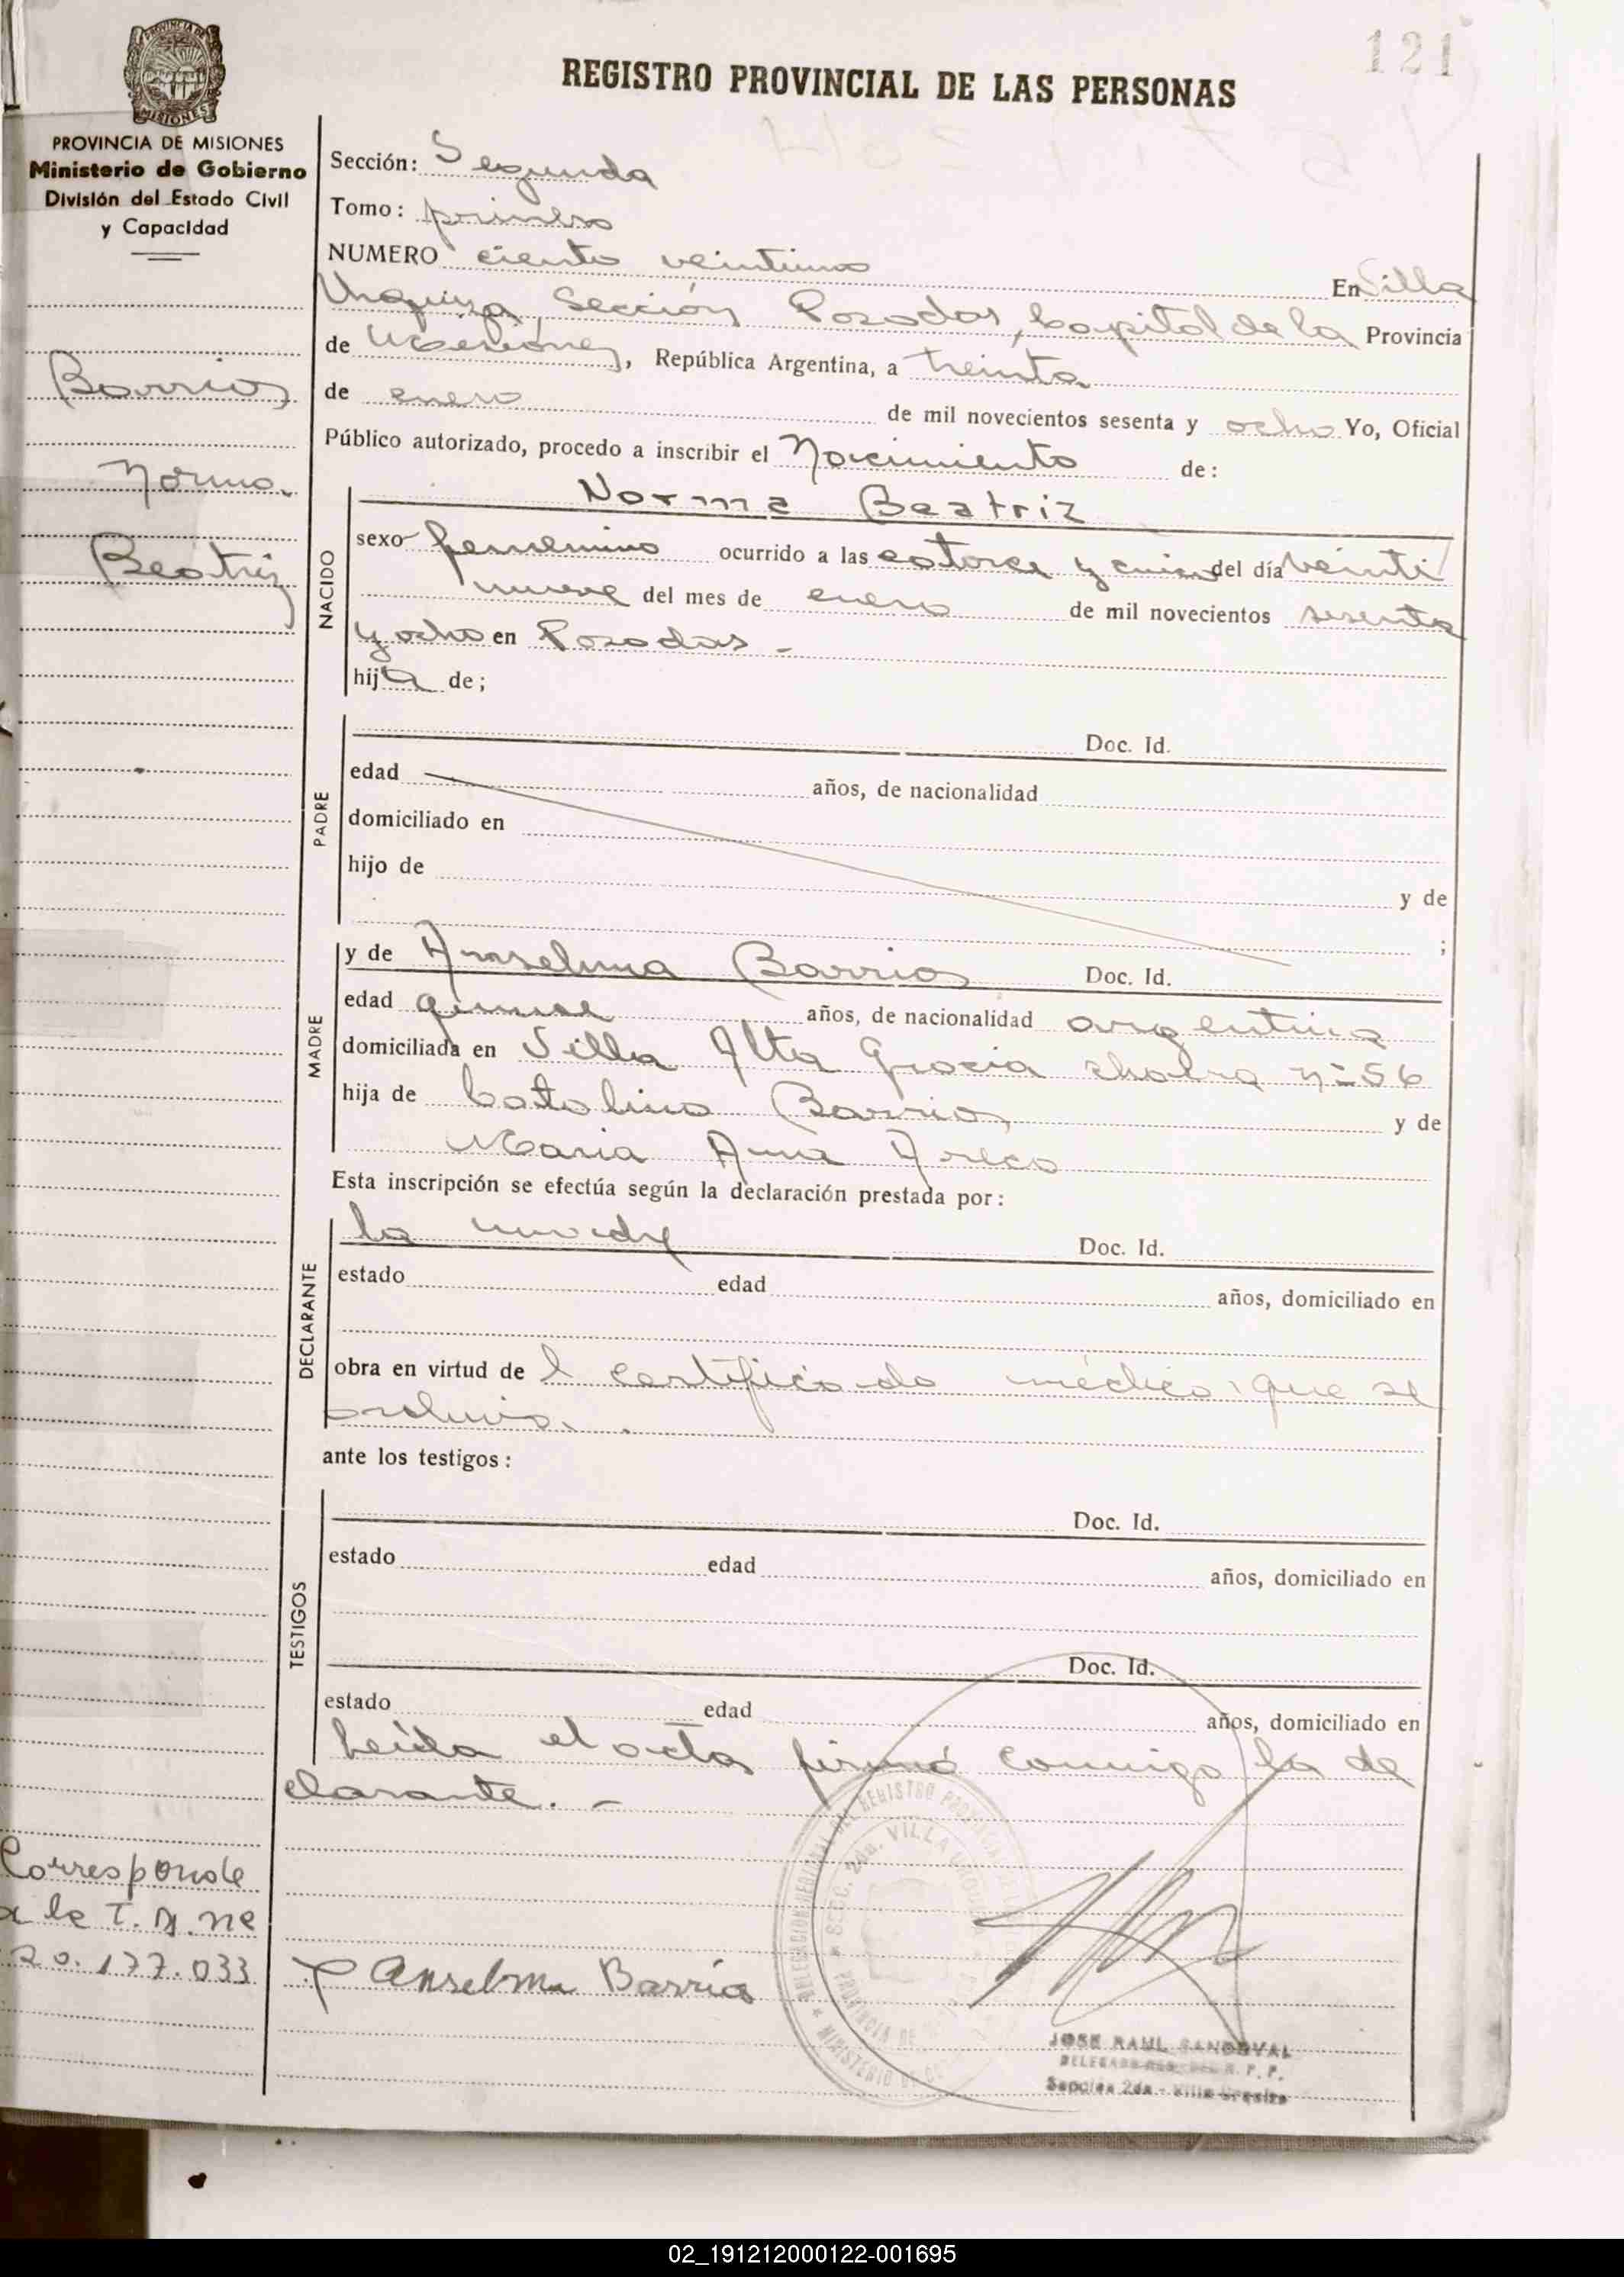 121
REGISTRO PROVINCIAL DE LAS PERSONAS
PROVINCIA DE MISIONES
Ministerio de Gobierno
División del Estado Civil
y Capacidad
Barrios
Norma
Beatriz
Sección: Segunda
Tomo: primero
NUMERO ciento veintiuno En Villa
Urquiza, Sección Posadas, Capital de la Provincia
de Misiones, República Argentina, a treinta
de enero de mil novecientos sesenta y ocho Yo, Oficial
Público autorizado, procedo a inscribir el Nacimiento de:
Norma Beatriz
NACIDO
sexo femenino ocurrido a las catorce y cinco del día veinti
nueve del mes de enero de mil novecientos sesenta
y ocho en Posadas. -
hija de;
PADRE
Doc. Id.
edad años, de nacionalidad
domiciliado en
hijo de y de
;
MADRE
y de Anselma Barrios Doc. Id.
edad quince años, de nacionalidad argentina
domiciliada en Villa Alta Gracia chacra nº 56
hija de Catalino Barrios y de
Maria Ana Areco
Esta inscripción se efectúa según la declaración prestada por:
DECLARANTE
la madre Doc. Id.
estado edad años, domiciliado en
obra en virtud del certificado médico que se
archiva.
ante los testigos:
TESTIGOS
Doc. Id.
estado edad años, domiciliado en
Doc. Id.
estado edad años, domiciliado en
Leída el acta firmó conmigo la de
clarante. -
Corresponde
a la T. N. nº
20.177.033
Anselma Barrio
SECC. 2da. VILLA URQUIZA
JOSE RAUL SANDOVAL
Sección 2da - Villa Urquiza
02_191212000122-001695